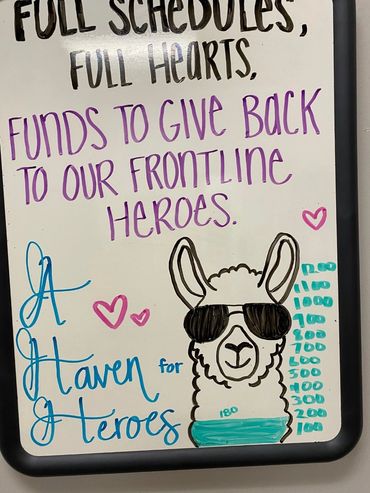 FULL SCHEDULES,
FULL HEARTS,
FUNDS TO GIVE BACK
TO OUR FRONTLINE
HEROES.
A
Haven for
Heroes
180
1200
1100
1000
900
800
700
600
500
400
300
200
100